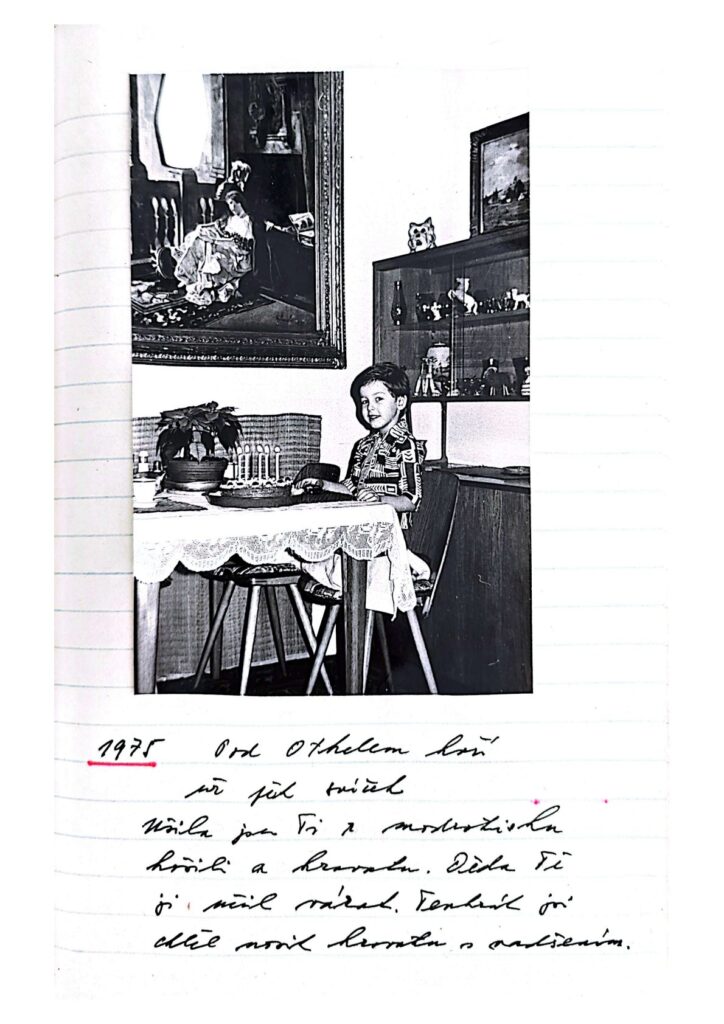 1975 Pod Othelem hoří
už pět svíček
Ušila jsem Ti z modrotisku
košili a kravatu. Děda Tě
ji učil vázat. Tenkrát jsi
chtěl nosit kravatu s nadšením.